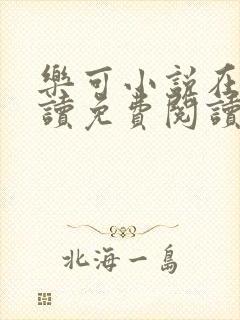 樂可小説在
讀免費閱讀
北海一島